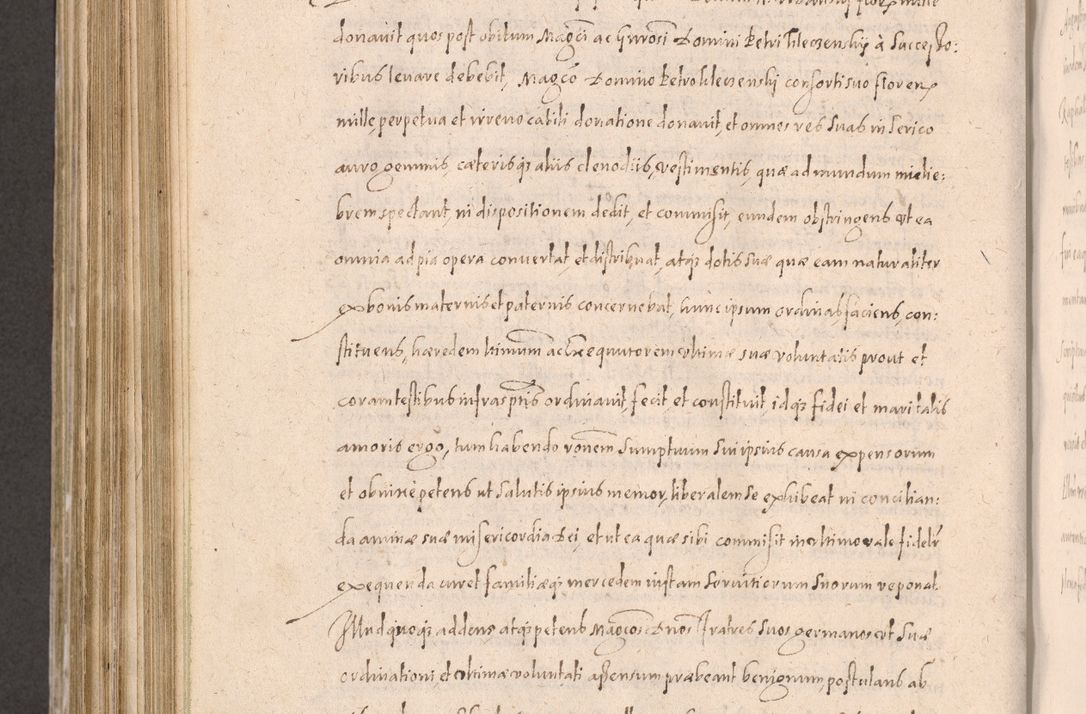 donavit quos post obitum Magci ac Gnrosi Domini Petri Kleczenskij à Succeſso:
ribus levare debebit, Magco Domino Petro Kleczenski consorti suo floren
mille, perpetua et irrevocabili donatione donavit, et omnes res suas in serico
auro, gemmis, cæterisq́ aliis clenodiis, vestimentis, quæ ad mundum mulie:
brem spectant, in dispositionem dedit, et commisit, eundem obstringens ut ea
omnia ad pia opera convertat, et distribuat, atq́ dotis suæ quæ eam naturaliter
ex bonis maternis et paternis concernebat, hunc ipsum ordinat, faciens, con:
stituens, hæredem ltimum ac Exequutorem ultimæ suæ voluntatis prout et
coram testibus infrasptis ordinavit, fecit, et constituit, idq́ fidei et maritalis
amoris ergo, tum habendo ronem sumptuum sui ipsius causa expensorum
et obnixè petens ut salutis ipsius memor, liberalem se exhibeat in concilian:
da animæ suæ misericordia Dei, et ut ea quæ sibi commisit in ultimo vale fideliter
exequenda curet familiæq́ mercedem iustam servitiorum suorum reponat.
Illud quoq́ addens atq́ petens Magcos Dnos Fratres suos germanos ut suæ
ordinationi, et ultimæ voluntati assensum præbeant benignum, postulans ab